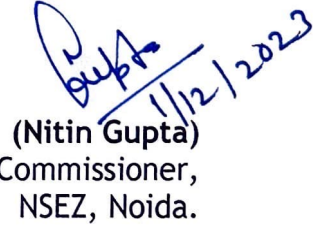 Gupta
1/12/2023
(Nitin Gupta)
Commissioner,
NSEZ, Noida.